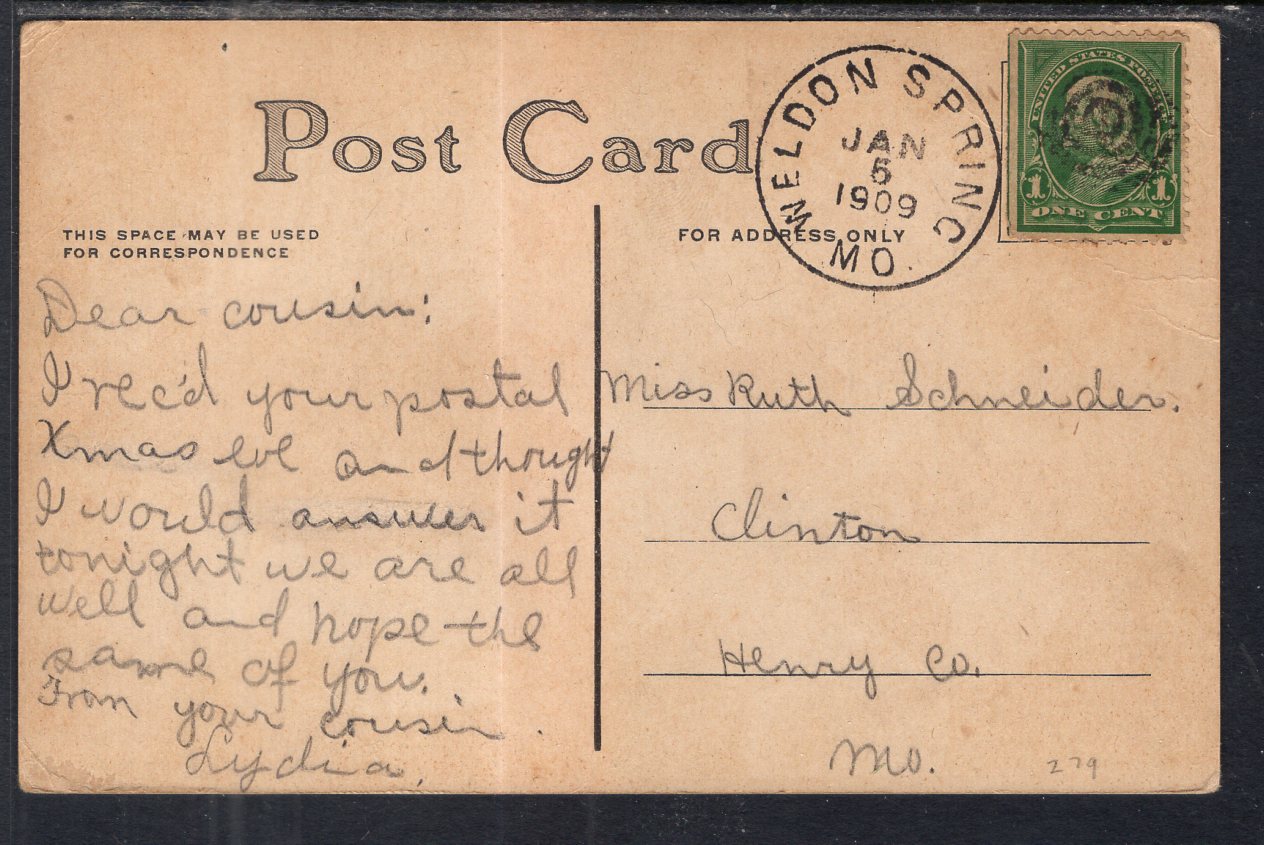 Post Card
THIS SPACE MAY BE USED
FOR CORRESPONDENCE
Dear cousin:
I rec'd your postal
Xmas eve and thought
I would answer it
tonight we are all
well and hope the
same of you.
From your cousin.
Lydia.
FOR ADDRESS ONLY
WELDON SPRING
JAN
5
1909
MO.
UNITED STATES POSTAGE
1 1
ONE CENT
Miss Ruth Schneider.
Clinton
Henry Co.
Mo.
279